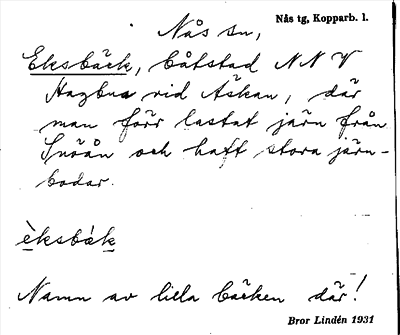 Nås sn,
Nås tg, Kopparb. l.
Eksbäck, båtstad N N V
Hagbua vid Åskan, där
man förr lastat järn från
Snöån och haft stora järn-
bodar.
èksbák
Namn av lilla bäcken där!
Bror Lindén 1931